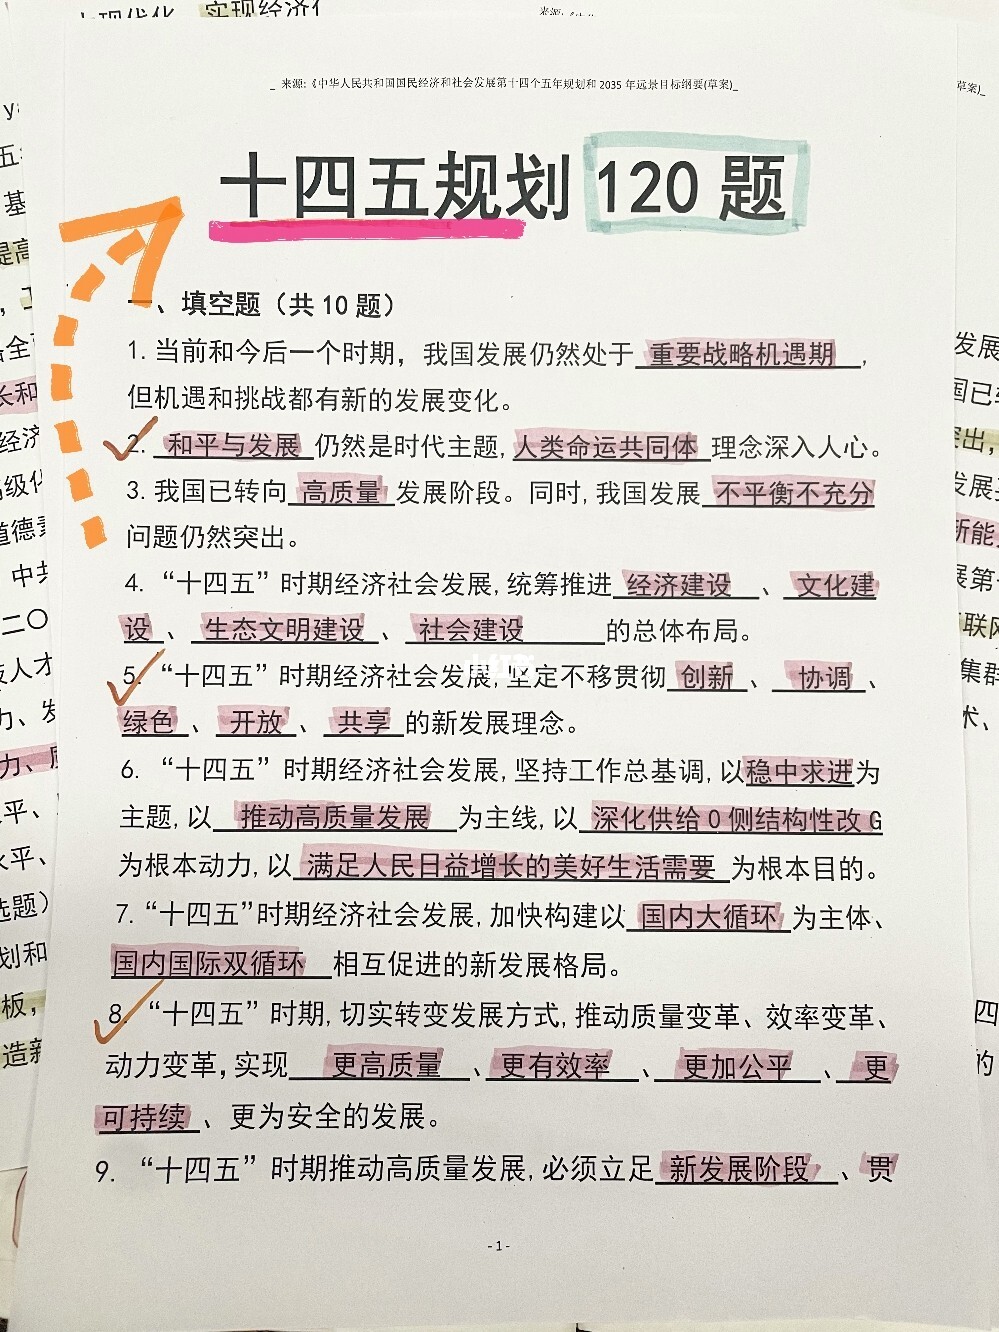 来源:《中华人民共和国国民经济和社会发展第十四个五年规划和 2035 年远景目标纲要(草案)_
十四五规划 120 题
一、填空题（共 10 题）
1. 当前和今后一个时期，我国发展仍然处于 重要战略机遇期 ，
但机遇和挑战都有新的发展变化。
2. 和平与发展 仍然是时代主题,人类命运共同体 理念深入人心。
3. 我国已转向 高质量 发展阶段。同时,我国发展 不平衡不充分
问题仍然突出。
4. “十四五”时期经济社会发展,统筹推进 经济建设 、 文化建
设 、 生态文明建设 、 社会建设 的总体布局。
5. “十四五”时期经济社会发展,坚定不移贯彻 创新 、 协调 、
绿色 、 开放 、 共享 的新发展理念。
6. “十四五”时期经济社会发展,坚持工作总基调,以稳中求进为
主题,以 推动高质量发展 为主线,以 深化供给 0 侧结构性改 G
为根本动力,以 满足人民日益增长的美好生活需要 为根本目的。
7.“十四五”时期经济社会发展,加快构建以 国内大循环 为主体、
国内国际双循环 相互促进的新发展格局。
8. “十四五”时期,切实转变发展方式,推动质量变革、效率变革、
动力变革,实现 更高质量 、更有效率 、 更加公平 、 更
可持续 、更为安全的发展。
9. “十四五”时期推动高质量发展,必须立足 新发展阶段 、贯
-1-
小红书